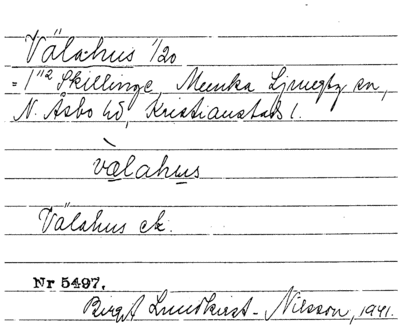 Välahus 1/20
= 1"2 Skillinge, Munka Ljungby sn,
N. Åsbo hd, Kristianstads l.
vœ̀lahus
Välahus ek.
Nr 5497.
Birgit Lundkvist-Nilsson, 1941.